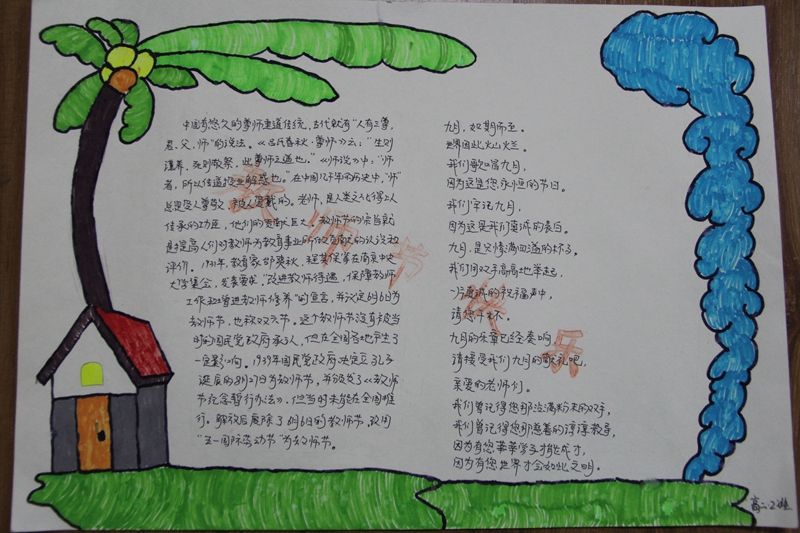 中国有悠久的尊师重道传统，古代就有“人有三尊，
君、父、师”的说法。《吕氏春秋·尊师》云：“生则
谨养，死则敬祭，此尊师之道也。”《师说》中：“师
者，所以传道授业解惑也。”在中国几千年的历史中，“师”
总是受人尊敬，被人爱戴的。老师，是人类文化得以
传承的功臣，他们的贡献巨大，教师节的宗旨就
是提高人们对教师为教育事业所做贡献的认识和
评价。1931年，教育家邰爽秋、程其保等在南京中央
大学集会，发表要求“改进教师待遇，保障教师
工作和增进教师修养”的宣言，并议定6月6日为
教师节，也称双六节。这个教师节没有被当
时的国民党政府承认，但在全国各地产生了
一定影响。1939年国民党政府决定立孔子
诞辰的8月27日为教师节，并颁发了《教师
节纪念暂行办法》，但当时未能在全国推
行。解放后废除了6月6日的教师节，改用
“五一国际劳动节”为教师节。
九月，如期而至。
世界因此灿烂。
我们歌唱九月，
因为这是您永恒的节日。
我们牢记九月，
因为这是我们真诚的表白。
九月，是只像满而溢的杯子，
我们用双手高高地举起，
一片真诚的祝福声中，
请您干杯。
九月的乐章已经奏响，
请接受我们九月的敬礼吧，
亲爱的老师们。
我们曾记得您那沾满粉末的双手，
我们曾记得您那慈善的谆谆教导，
因为有您莘莘学子才能成才，
因为有您世界才会如此文明。
教师节快乐
高二·2班